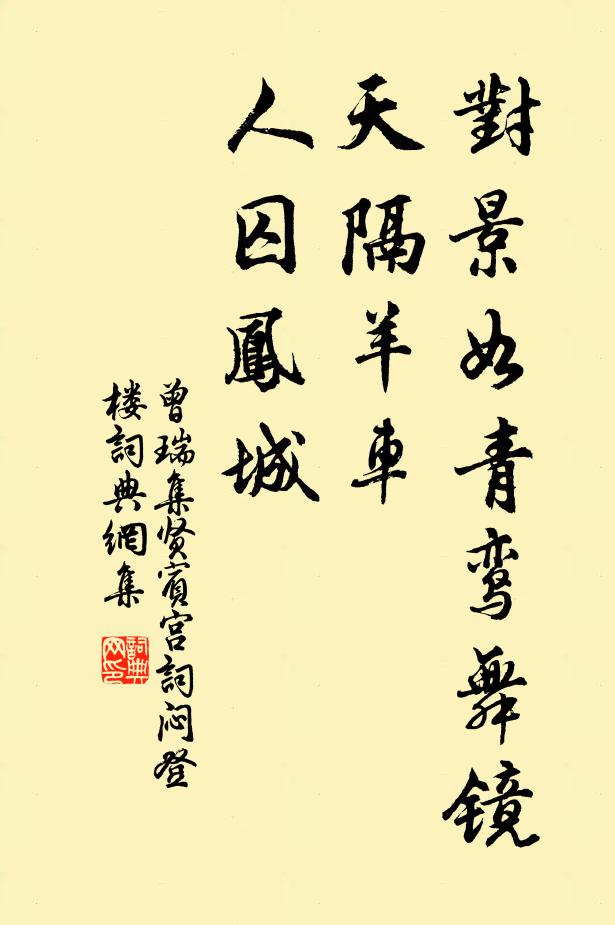 對景如青鸾舞镜
天隔羊車
人囚鳳城
曾瑞集贤賓宫詞闷登
楼詞典網集
詞典
网印